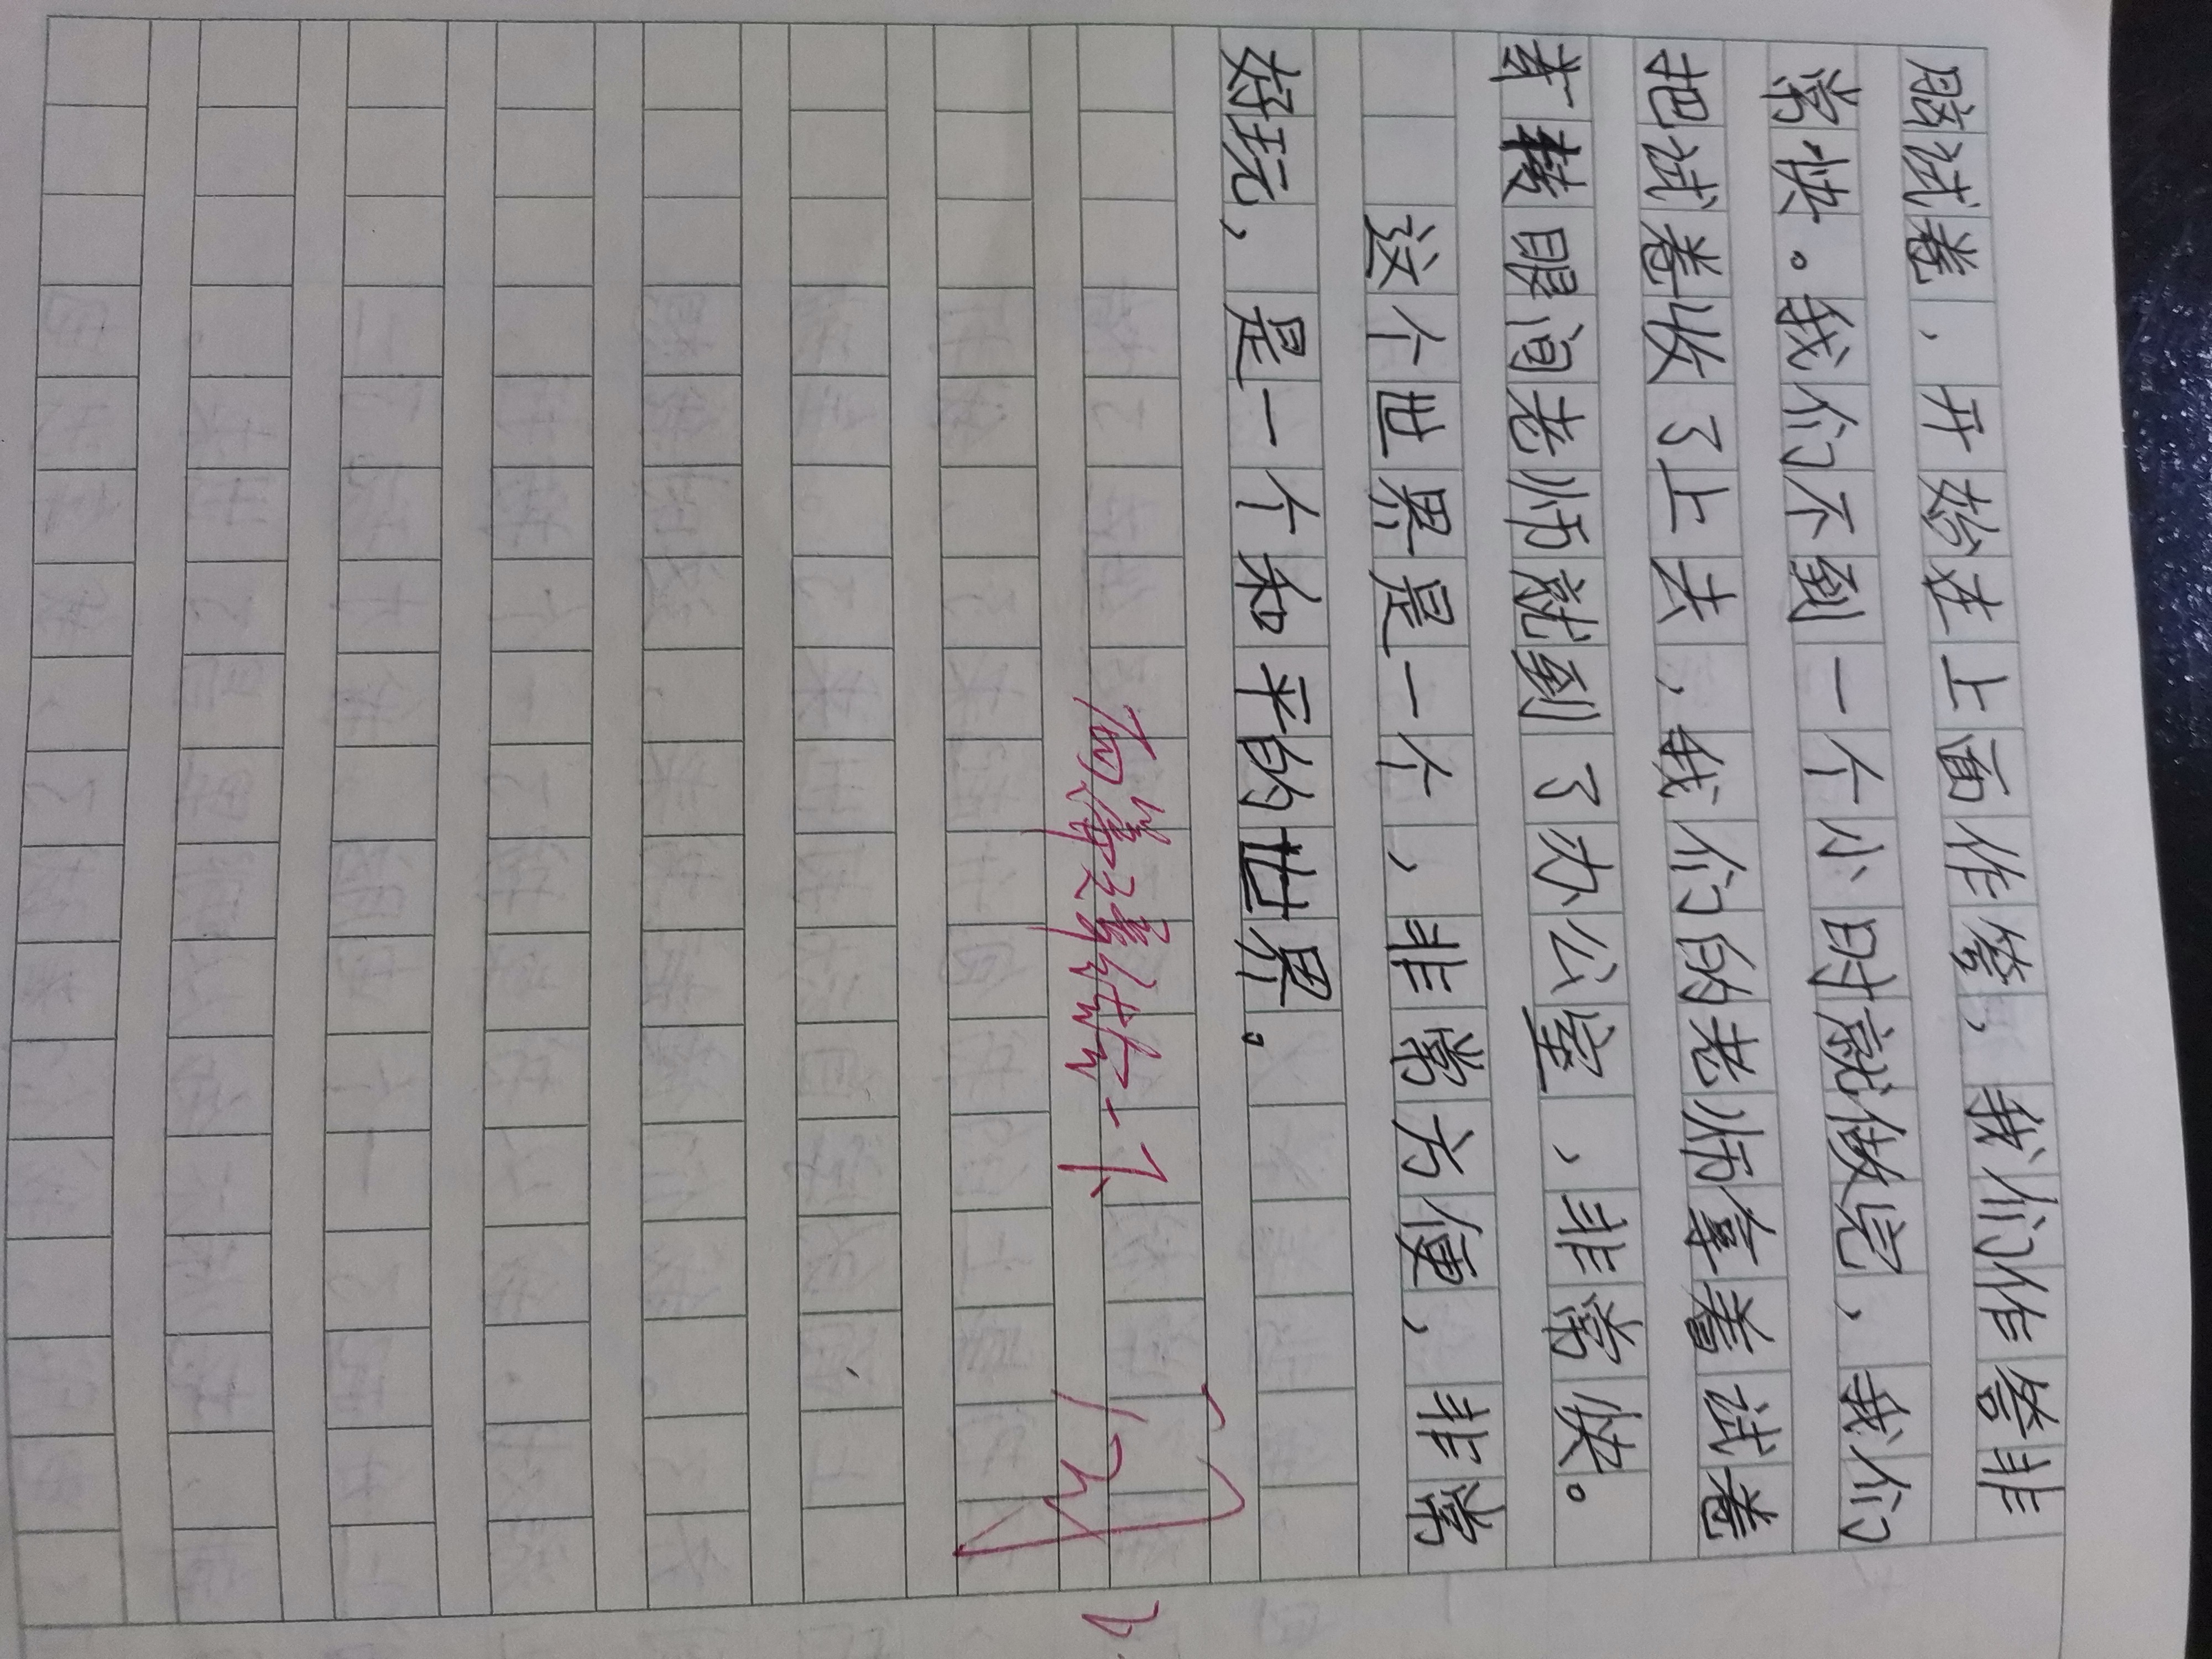 脑试卷，开始在上面作答，我们作答非
常快。我们不到一个小时就做完，我们
把试卷收了上去，我们的老师拿着试卷
眼间老师就到了办公室，非常快。
这个世界是一个，非常方便，非常
好玩，是一个和平的世界。